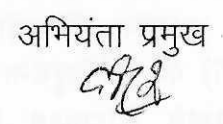 अभियंता प्रमुख